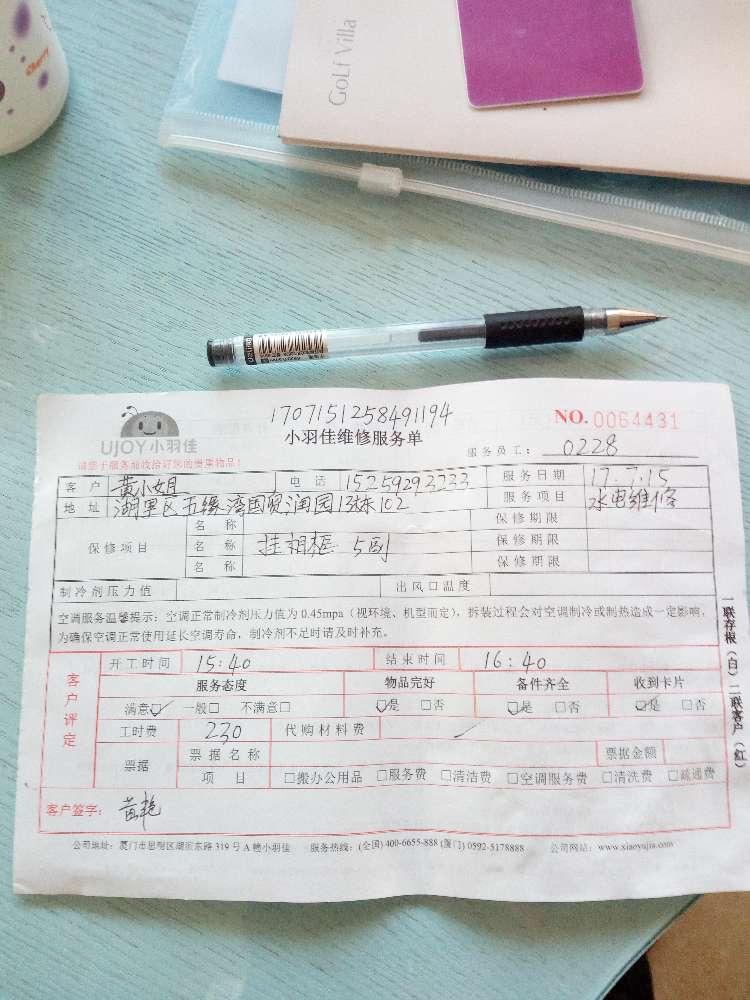 Cherry
GoLf Villa
1707151258491194
UJOY小羽佳
小羽佳维修服务单
NO.0064431
请您于服务前收拾好您的贵重物品!
服务员工: 0228
客户 黄小姐 电话 15259293223 服务日期 17.7.15
地址 湖里区五缘湾国贸润园13栋102 服务项目 水电维修
保修项目
名称 保修期限
名称 挂相框 5副 保修期限
名称 保修期限
制冷剂压力值 出风口温度
空调服务温馨提示:空调正常制冷剂压力值为 0.45mpa(视环境、机型而定),拆装过程会对空调制冷或制热造成一定影响,
为确保空调正常使用延长空调寿命,制冷剂不足时请及时补充。
客户评定
开工时间 15:40 结束时间 16:40
服务态度 物品完好 备件齐全 收到卡片
满意☑ 一般□ 不满意□ ☑是 □否 ☑是 □否 ☑是 □否
工时费 230 代购材料费
票据 票据名称 票据金额
项目 □搬办公用品 □服务费 □清洁费 □空调服务费 □清洗费 □疏通费
客户签字: 黄艳
一联存根(白)二联客户(红)
公司地址:厦门市思明区湖滨东路 319 号 A 幢小羽佳 服务热线:(全国) 400-6655-888 (厦门) 0592-5178888 公司网站:www.xiaoyujia.com